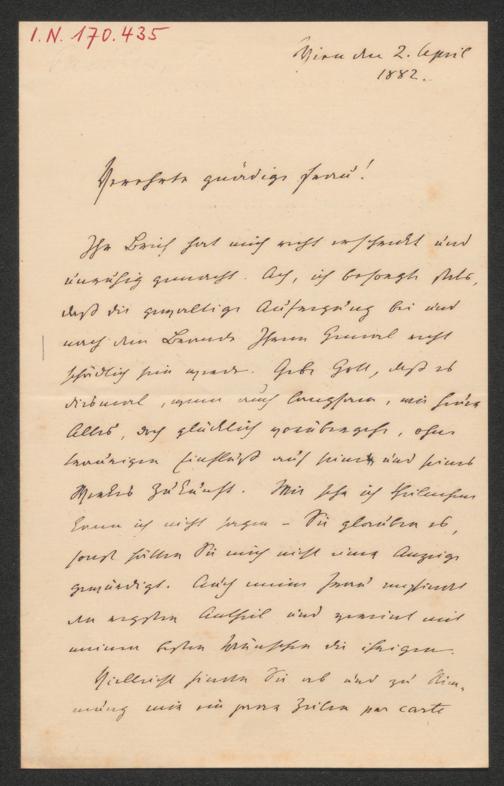 I.N. 170.435
Wien den 2. April
1882.
Verehrte gnädige Frau!
Ihr Brief hat mich recht erschreckt und
unruhig gemacht. Ach, ich besorgte stets,
daß die gewaltige Aufregung bei und
nach dem Brande Ihrem Gemal recht
schädlich sein werde. Gebe Gott, daß es
diesmal, wenn auch langsam, wie
Alles, doch glücklich vorübergehe, ohne
traurigen Einfluß auf seine und seines
Werkes Zukunft. Wie sehr ich theilnehme
kann ich nicht sagen – Sie glauben es,
sonst hätten Sie mich nicht einer Anzeige
gewürdigt. Auch meine Frau empfindet
den regsten Antheil und vereint mit
meinen besten Wünschen die ihrigen.
Vielleicht senden Sie ab und zu
mir ein paar Zeilen per carte